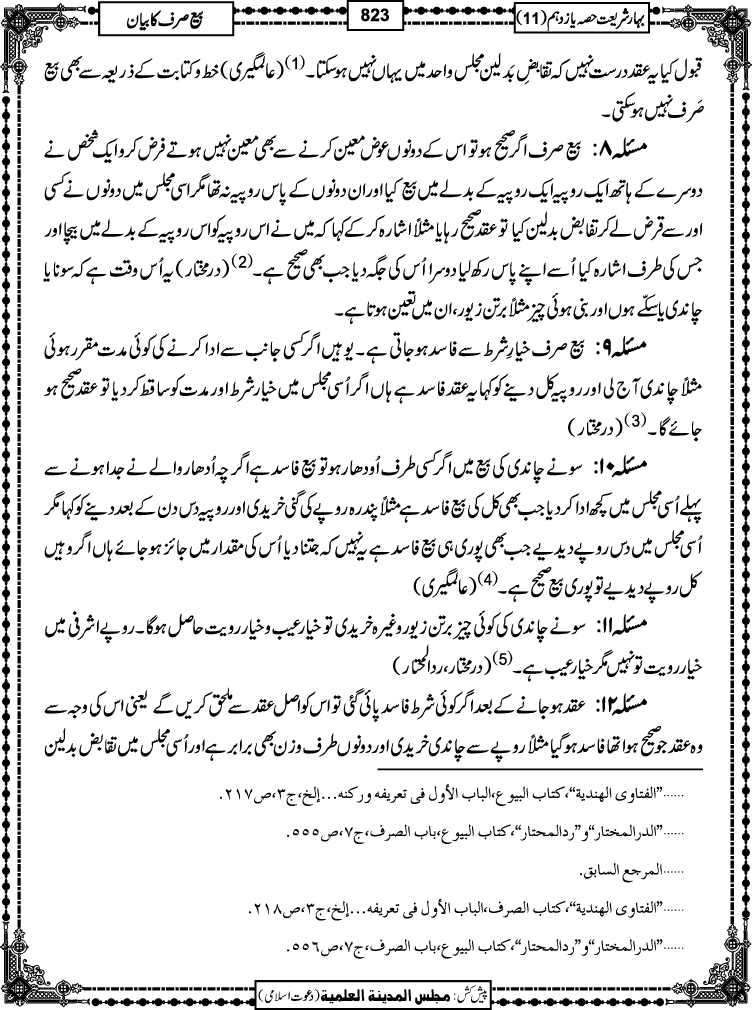 بہارِ شریعت حصہ یازدہم (11)
823
بیع صرف کا بیان
قبول کیا یہ عقد درست نہیں کہ تقابضِ بدلین مجلس واحد میں یہاں نہیں ہوسکتا۔(1) (عالمگیری) خط و کتابت کے ذریعہ سے بھی بیع
صَرف نہیں ہوسکتی۔
مسئلہ ۸: بیع صرف اگر صحیح ہو تو اس کے دونوں عوض معین کرنے سے بھی معین نہیں ہوتے فرض کرو ایک شخص نے
دوسرے کے ہاتھ ایک روپیہ ایک روپیہ کے بدلے میں بیع کیا اور ان دونوں کے پاس روپیہ نہ تھا مگر اسی مجلس میں دونوں نے کسی
اور سے قرض لے کر تقابض بدلین کیا تو عقد صحیح رہا یا مثلاً اشارہ کرکے کہا کہ میں نے اس روپیہ کو اس روپیہ کے بدلے میں بیچا اور
جس کی طرف اشارہ کیا اُسے اپنے پاس رکھ لیا دوسرا اُس کی جگہ دیا جب بھی صحیح ہے۔(2) (درمختار) یہ اُس وقت ہے کہ سونا یا
چاندی یا سکّے ہوں اور بنی ہوئی چیز مثلاً برتن زیور، ان میں تعین ہوتا ہے۔
مسئلہ ۹: بیع صرف خیارِ شرط سے فاسد ہوجاتی ہے۔ یوہیں اگر کسی جانب سے ادا کرنے کی کوئی مدت مقرر ہوئی
مثلاً چاندی آج لی اور روپیہ کل دینے کو کہا یہ عقد فاسد ہے ہاں اگر اُسی مجلس میں خیار شرط اور مدت کو ساقط کردیا تو عقد صحیح ہو
جائے گا۔(3) (درمختار)
مسئلہ ۱۰: سونے چاندی کی بیع میں اگر کسی طرف اُودھار ہو تو بیع فاسد ہے اگرچہ اُدھار والے نے جدا ہونے سے
پہلے اُسی مجلس میں کچھ ادا کردیا جب بھی کل کی بیع فاسد ہے مثلاً پندرہ روپے کی گنی خریدی اور روپیہ دس دن کے بعد دینے کو کہا مگر
اُسی مجلس میں دس روپے دیدیے جب بھی پوری ہی بیع فاسد ہے یہ نہیں کہ جتنا دیا اُس کی مقدار میں جائز ہوجائے ہاں اگر وہیں
کل روپے دیدیے تو پوری بیع صحیح ہے۔(4) (عالمگیری)
مسئلہ ۱۱: سونے چاندی کی کوئی چیز برتن زیور وغیرہ خریدی تو خیار عیب و خیار رویت حاصل ہوگا۔ روپے اشرفی میں
خیار رویت تو نہیں مگر خیار عیب ہے۔(5) (درمختار، ردالمحتار)
مسئلہ ۱۲: عقد ہوجانے کے بعد اگر کوئی شرط فاسد پائی گئی تو اس کو اصل عقد سے ملحق کریں گے یعنی اس کی وجہ سے
وہ عقد جو صحیح ہوا تھا فاسد ہوگیا مثلاً روپے سے چاندی خریدی اور دونوں طرف وزن بھی برابر ہے اور اُسی مجلس میں تقابض بدلین
......”الفتاوی الھندیة“،کتاب البیوع،الباب الأول فی تعریفه ورکنه...إلخ،ج۳،ص۲۱۷.
......”الدرالمختار“و”ردالمحتار“،کتاب البیوع،باب الصرف،ج۷،ص۵۵۵.
......المرجع السابق.
......”الفتاوی الھندیة“،کتاب الصرف،الباب الأول فی تعریفه...إلخ،ج۳،ص۲۱۸.
......”الدرالمختار“و”ردالمحتار“،کتاب البیوع،باب الصرف،ج۷،ص۵۵۶.
پیش کش: مجلس المدینة العلمیة (دعوت اسلامی)